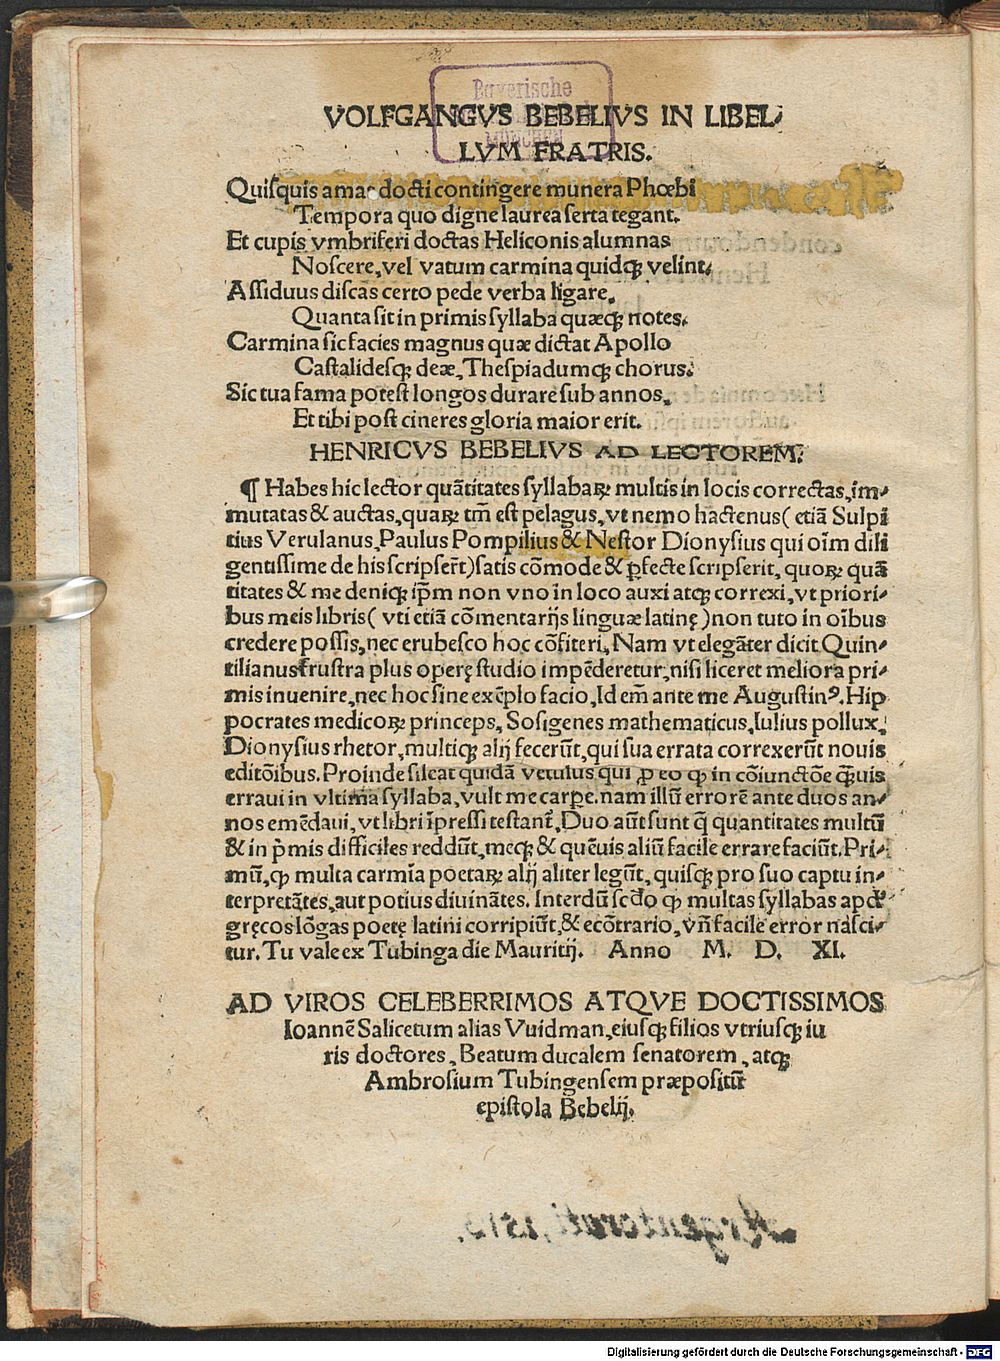 Bayerische
MÜNCHEN
VOLFGANGVS BEBELIVS IN LIBEL⸗
LVM FRATRIS.
Quiſquis amas docti contingere munera Phœbi
Tempora quo digne laurea ſerta tegant.
Et cupis vmbriferi doctas Heliconis alumnas
Noſcere, vel vatum carmina quidqꝫ velint,
Aſſiduus diſcas certo pede verba ligare,
Quanta ſit in primis ſyllaba quæqꝫ notes,
Carmina ſic facies magnus quæ dictat Apollo
Caſtalideſqꝫ deæ, Theſpiadumqꝫ chorus.
Sic tua fama poteſt longos durare ſub annos,
Et tibi poſt cineres gloria maior erit.
HENRICVS BEBELIVS AD LECTOREM.
¶ Habes hic lector quãtitates ſyllabaꝝ multis in locis correctas, im⸗
mutatas & auctas, quaꝝ tm̃ eſt pelagus, vt nemo hactenus ( etiã Sulpi
tius Verulanus, Paulus Pompilius & Neſtor Dionyſius qui oĩm dili
gentiſſime de his ſcripſer̃t) ſatis cõmode & ꝑfecte ſcripſerit, quoꝝ quã
titates & me deniqꝫ ip̃m non vno in loco auxi atqꝫ correxi, vt priori⸗
bus meis libris ( vti etiã cõmentarijs linguæ latinę ) non tuto in oĩbus
credere poſſis, nec erubeſco hoc cõfiteri, Nam vt elegãter dicit Quin⸗
tilianus fruſtra plus operę ſtudio impẽderetur, niſi liceret meliora pri⸗
mis inuenire, nec hoc ſine exẽplo facio, Id em̃ ante me Auguſtinꝰ. Hip
pocrates medicoꝝ princeps, Soſigenes mathematicus, Iulius pollux,
Dionyſius rhetor, multiqꝫ alij fecerũt, qui ſua errata correxerũt nouis
editõibus. Proinde ſileat quidã vetulus qui ꝓ eo ꝙ in cõiunctõe q̃uis
erraui in vltima ſyllaba, vult me carpe. nam illũ errorẽ ante duos an⸗
nos emẽdaui, vt libri ĩpreſſi teſtant̃. Duo aũt ſunt q̃ quantitates multũ
& in p̃mis difficiles reddũt, meqꝫ & quẽuis aliũ facile errare faciũt. Pri⸗
mũ, ꝙ multa carmĩa poetaꝝ alij aliter legũt, quiſqꝫ pro ſuo captu in⸗
terpretãtes, aut potius diuinãtes. Interdũ ſcd̃o ꝙ multas ſyllabas apd̃
gręcos lõgas poetę latini corripiũt, & ecõtrario, vñ facile error naſci⸗
tur. Tu vale ex Tubinga die Mauritij. Anno M. D. XI.
AD VIROS CELEBERRIMOS ATQVE DOCTISSIMOS
Ioannẽ Salicetum alias Vuidman, eiuſqꝫ filios vtriuſqꝫ iu
ris doctores, Beatum ducalem ſenatorem, atqꝫ
Ambroſium Tubingenſem præpoſitũ
epiſtola Bebelij.
Digitalisierung gefördert durch die Deutsche Forschungsgemeinschaft - DFG